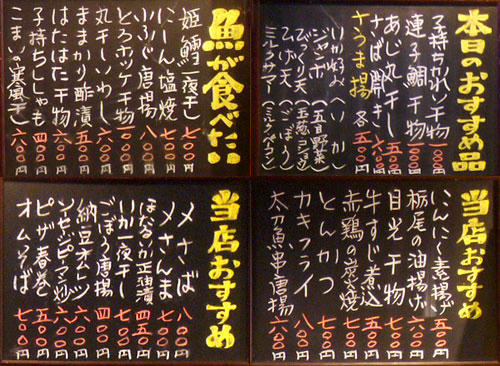 本日のおすすめ品
子持ちかれい干物 一〇〇〇円
連子鯛干物 一〇〇〇円
あじ丸干し 五〇〇円
さば開き 六〇〇円
さつま揚 各五〇〇円
いか
ジャンボ (五目野菜)
びっくり天
ひげ天 (ごぼう)
ミルクサマー
魚が食べた!!
姫鱈一夜干し 七〇〇円
にしん塩焼 七〇〇円
ふぐ唐揚 八〇〇円
とろホッケ干物
丸干しいわし 六〇〇円
ままかり酢漬 五〇〇円
はたはた干物 六〇〇円
子持ちししゃも 四〇〇円
こまいの寒風干し 六〇〇円
当店おすすめ
にんにく素揚げ 五〇〇円
栃尾の油揚げ 六〇〇円
目光干物 六〇〇円
牛すじ煮込 五〇〇円
赤鶏の炭焼 七〇〇円
とんかつ 七〇〇円
カキフライ 八〇〇円
太刀魚串唐揚 六〇〇円
当店おすすめ
〆さば 八〇〇円
〆さんま 七〇〇円
ほたるいか正油漬 四五〇円
いか一夜干し 五〇〇円
ごぼう唐揚 四〇〇円
納豆オムレツ 六〇〇円
ソーセージピーマン炒 六〇〇円
ピザ春巻 五〇〇円
オムそば 七〇〇円